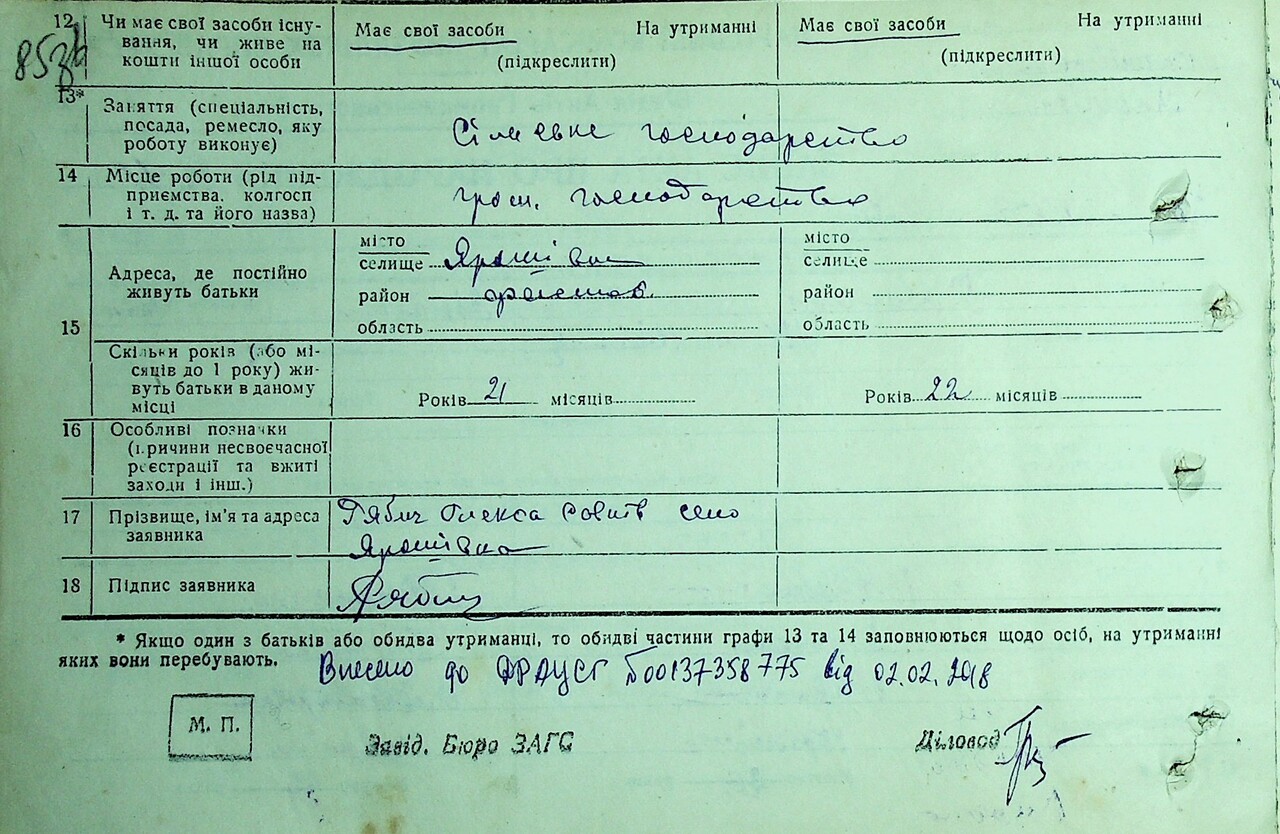 12 Чи має свої засоби існу-
вання, чи живе на
кошти іншої особи
Має свої засоби На утриманні
(підкреслити)
Має свої засоби На утриманні
(підкреслити)
85зв
13* Заняття (спеціальність,
посада, ремесло, яку
роботу виконує)
Сільське господарство
14 Місце роботи (рід під-
приємства, колгосп
і т. д. та його назва)
господарство
15 Адреса, де постійно
живуть батьки
місто
селище Ярошівка
район
область
місто
селище
район
область
Скільки років (або мі-
сяців до 1 року) жи-
вуть батьки в даному
місці
Років 21 місяців
Років 22 місяців
16 Особливі позначки
(причини несвоєчасної
реєстрації та вжиті
заходи і інш.)
17 Прізвище, ім'я та адреса
заявника
Рябич Олекса село
Ярошівка
18 Підпис заявника
* Якщо один з батьків або обидва утриманці, то обидві частини графи 13 та 14 заповнюються щодо осіб, на утриманні
яких вони перебувають.
Внесено до ДРАЦСГ №00137358775 від 02.02.2018
М. П.
Завід. Бюро ЗАГС
Діловод